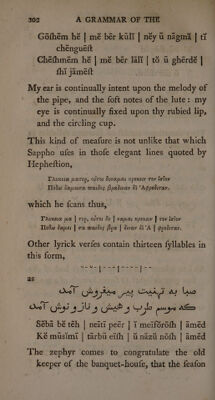 202 A GRAMMAR OF THE
Gōſhĕm hĕ | mĕ bĕr kūlī | nĕy ŭ năgmă | tĭ
chĕnguĕſt
Chĕſhmĕm hĕ | mĕ bĕr lālī | tŏ ŭ ghĕrdĕ |
ſhī jāmĕſt
My ear is continually intent upon the melody of
the pipe, and the ſoft notes of the lute: my
eye is continually fixed upon thy rubied lip,
and the circling cup.
This kind of meaſure is not unlike that which
Sappho uſes in thoſe elegant lines quoted by
Hepheſtion,
Γλυκεια ματερ, ουτοι δυναμαι κρεκειν τον ἱστον
Ποθω δαμεισα παιδος βραδιναν δι’ Αφροδιταν.
which he ſcans thus,
Γλυκεια μα | τερ, ουτοι δυ | ναμαι κρεκειν | τον ἱστον
Ποθω δαμει | σα παιδος βρα | διναν δι’ Α | φροδιταν.
Other lyrick verſes contain thirteen ſyllables in
this form,
as
صبا به تهنیت پیر میفروش آمد
که موسم طرب و عیش و ناز و نوش آمد
Sĕbā bĕ tĕh | nĕitī pĕĕr | ĭ mĕīfŏrōſh | āmĕd
Kĕ mūſimī | tărbŭ eīſh | ŭ nāzŭ nōſh | āmĕd
The zephyr comes to congratulate the old
keeper of the banquet-houſe, that the ſeaſon